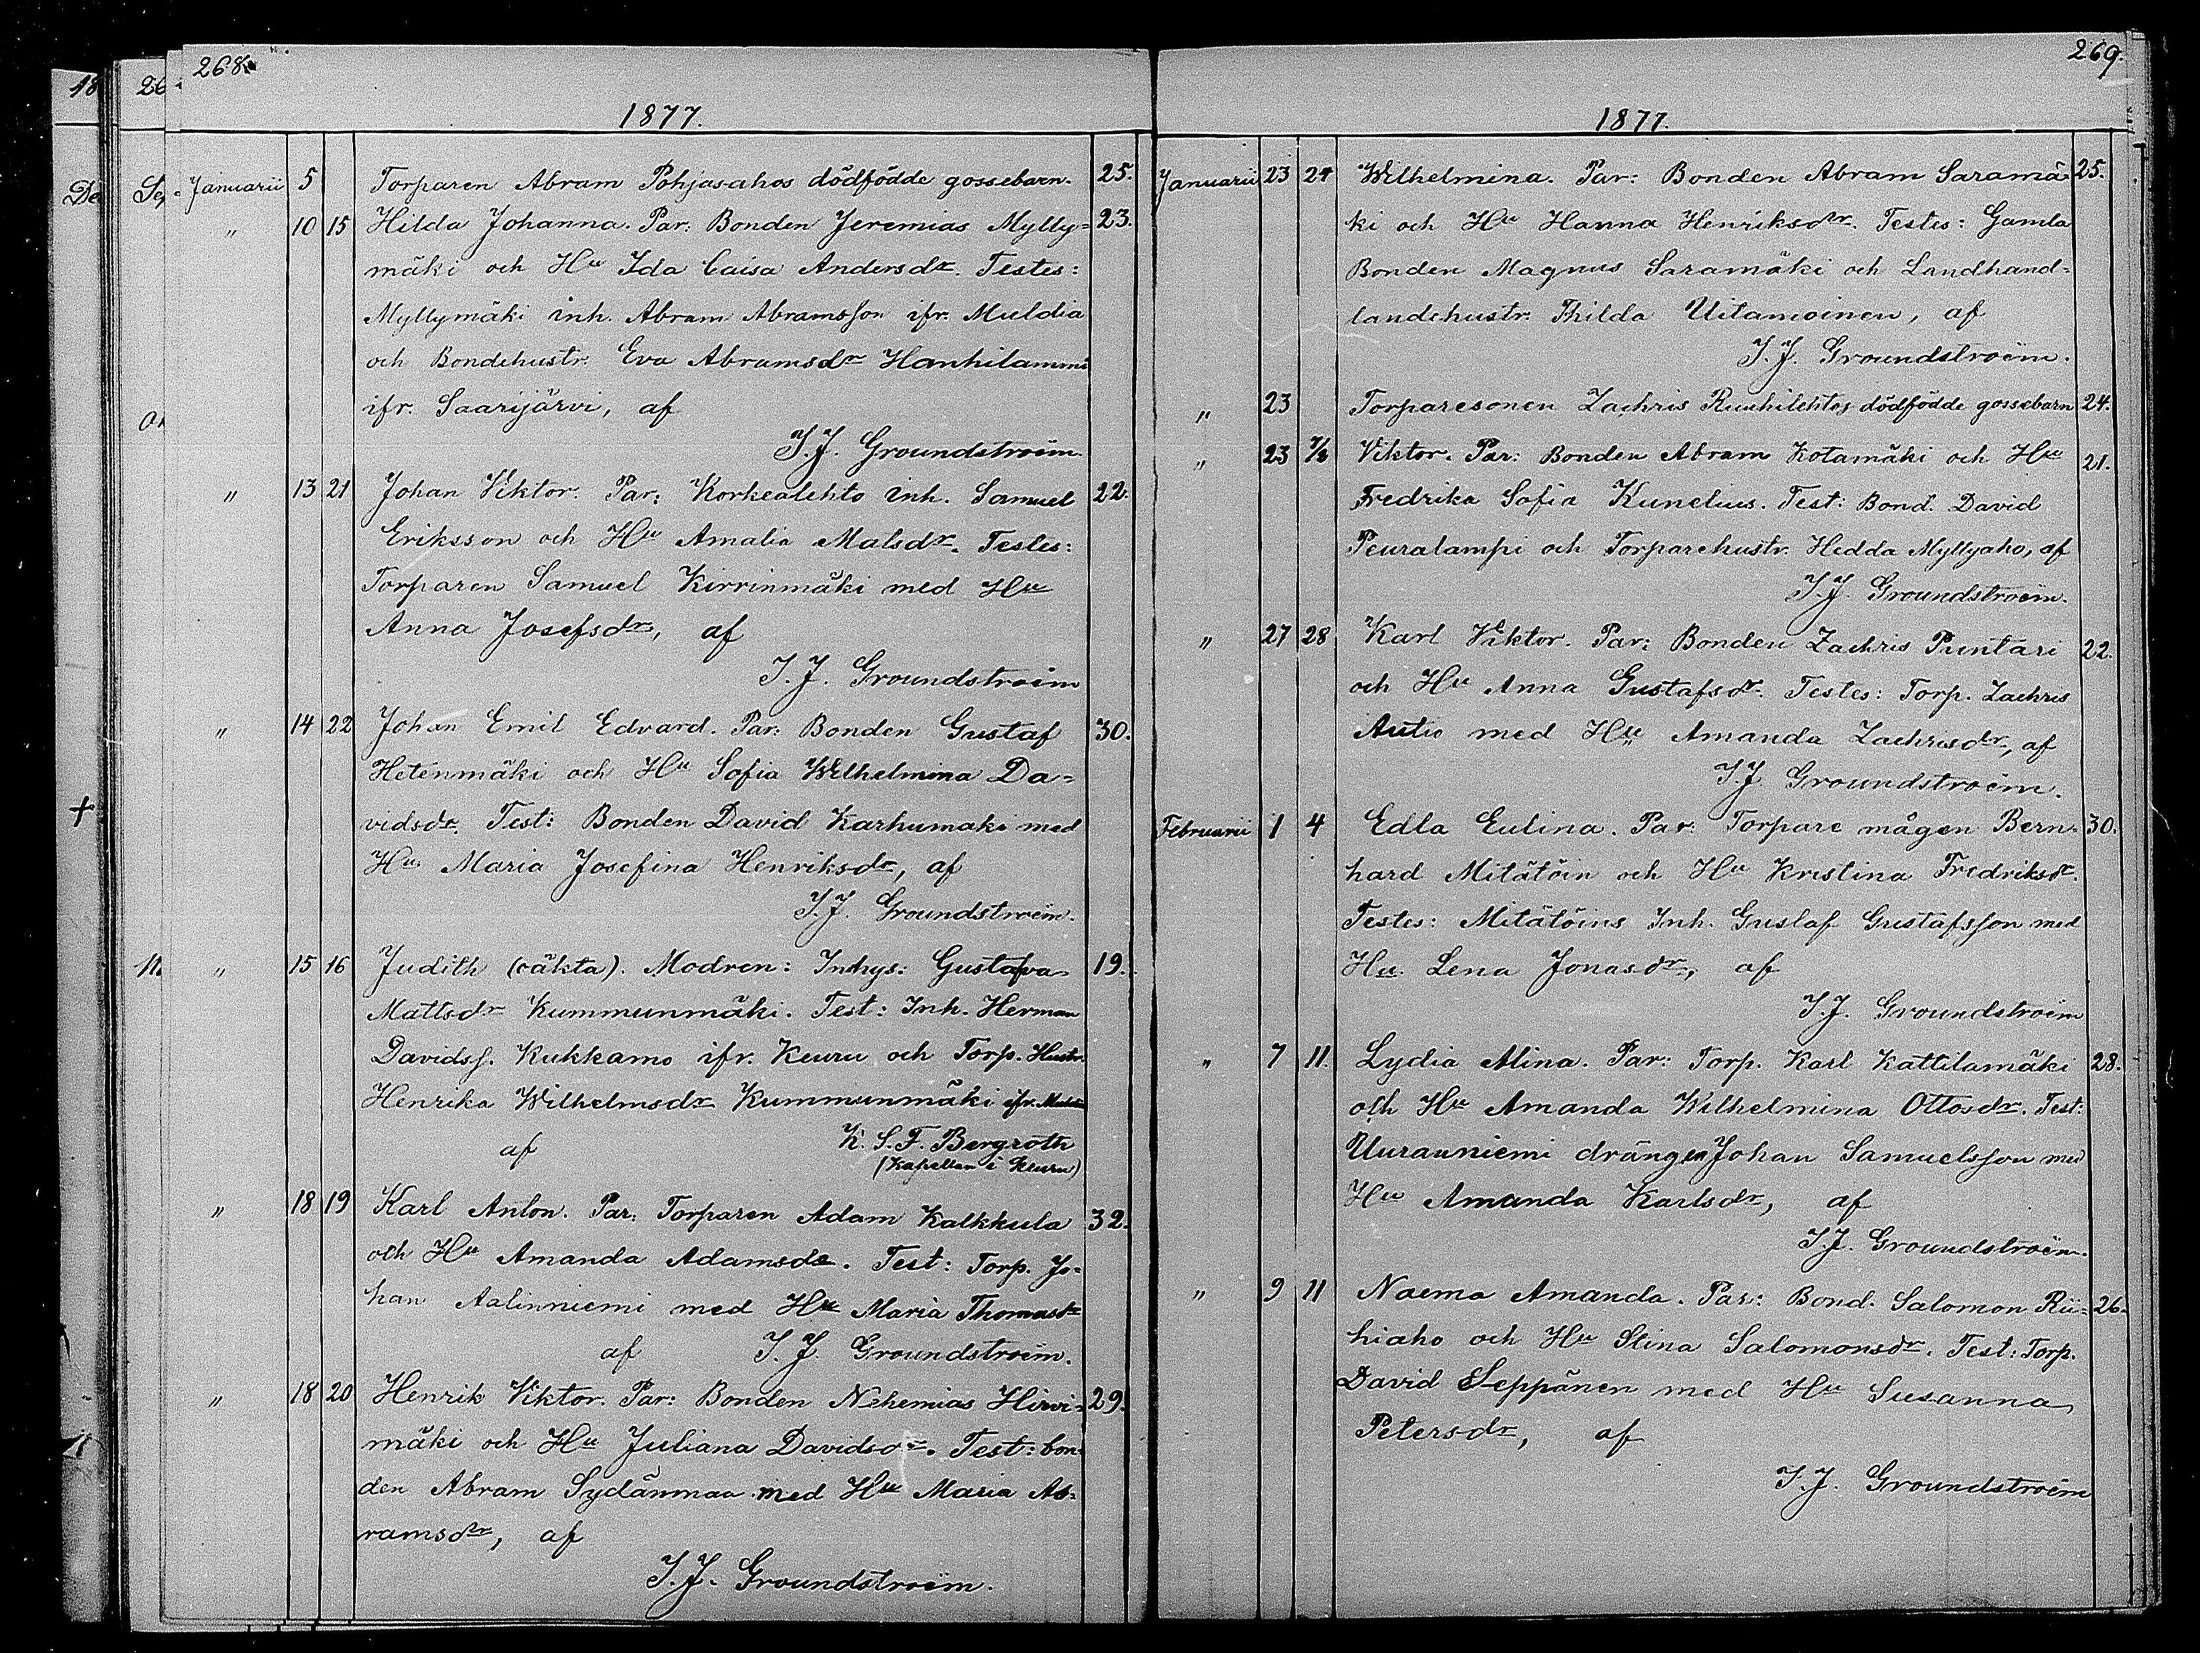 268.
1877.
Januarii 5 Torparen Abram Pohjasahos dödfödde gossebarn. 25.
" 10 15 Hilda Johanna. Par: Bonden Jeremias Mylly- 23.
mäki och Hu Ida Caisa Andersdr. Testes:
Myllymäki inh. Abram Abramsson ifr. Muldia
och Bondehustr. Eva Abramsdr Hanhilammi
ifr. Saarijärvi, af
I.J. Groundstroëm.
" 13 21 Johan Viktor. Par: Korkealehto inh. Samuel 22.
Eriksson och Hu Amalia Matsdr. Testes:
Torparen Samuel Kirrinmäki med Hu
Anna Josefsdr, af
I.J. Groundstroëm
" 14 22 Johan Emil Edvard. Par: Bonden Gustaf 30.
Hetenmäki och Hu Sofia Wilhelmina Da-
vidsdr. Test: Bonden David Karhumaki med
Hu Maria Josefina Henriksdr, af
I.J. Groundstroëm.
" 15 16 Judith (oäkta). Modren: Inhys: Gustafva 19.
Mattsdr Kummunmäki. Test: Inh. Herman
Davidss. Kukkamo ifr. Keuru och Torp. Hustr.
Henrika Wilhelmsdr Kummunmäki ifr.
af K. S. F. Bergroth
(Kapellan i Keuru)
" 18 19 Karl Anton. Par: Torparen Adam Kalkkula 32.
och Hu Amanda Adamsdr. Test: Torp. Jo-
han Aalinniemi med Hu Maria Thomasdr
af I.J. Groundstroëm.
" 18 20 Henrik Viktor. Par: Bonden Nehemias Hirvi- 29.
mäki och Hu Juliana Davidsdr. Test: bon-
den Abram Sydänmaa med Hu Maria Ab-
ramsdr, af
I.J. Groundstroëm.
269.
1877.
Januarii 23 24 Wilhelmina. Par: Bonden Abram Saramä- 25.
ki och Hu Hanna Henriksdr. Testes: Gamla
Bonden Magnus Saramäki och Landhand-
landehustr. Thilda Uitamoinen, af
I.J. Groundstroëm.
" 23 Torparesonen Zachris Ruuhilehtos dödfödde gossebarn 24.
" 23 7/2 Viktor. Par: Bonden Abram Kotamäki och Hu 21.
Fredrika Sofia Kunelius. Test: Bond. David
Peuralampi och Torparehustr. Hedda Myllyaho, af
I.J. Groundstroëm.
" 27 28 Karl Viktor. Par: Bonden Zachris Puntari 22.
och Hu Anna Gustafsdr. Testes: Torp. Zachris
Autio med Hu Amanda Zachrisdr, af
I.J. Groundstroëm.
Februarii 1 4 Edla Eulina. Par: Torpare mågen Bern- 30.
hard Mitätöin och Hu Kristina Fredriksdr.
Testes: Mitätöins Inh. Gustaf Gustafsson med
Hu Lena Jonasdr, af
I.J. Groundstroëm
" 7 11. Lydia Alina. Par: Torp. Karl Kattilamäki 28.
och Hu Amanda Wilhelmina Ottosdr. Test:
Uurauniemi drängen Johan Samuelsson med
Hu Amanda Karlsdr, af
I.J. Groundstroëm.
" 9 11 Naema Amanda. Par: Bond. Salomon Rii- 26.
hiaho och Hu Stina Salomonsdr. Test: Torp.
David Seppänen med Hu Susanna
Petersdr, af
I.J. Groundstroëm